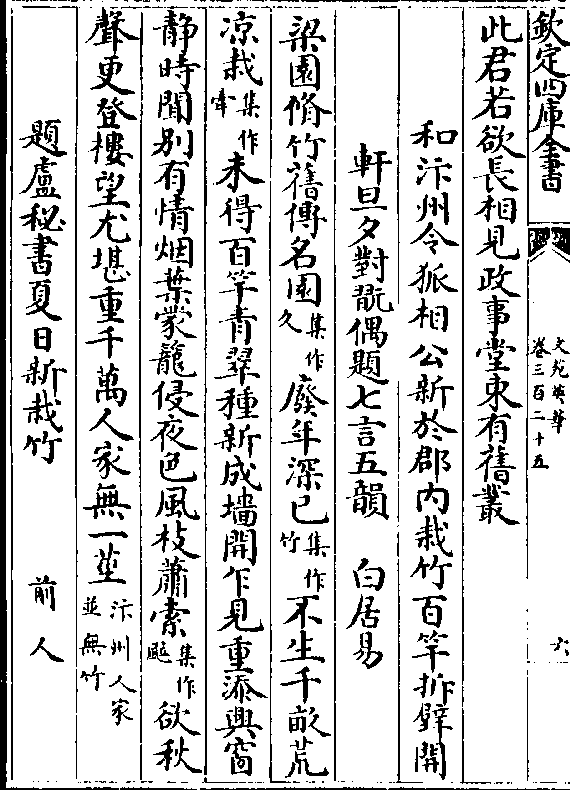 欽定四庫全書
文苑英華
卷三百二十五
六
此君若欲長相見政事堂東有舊叢
和汴州令狐相公新於郡内栽竹百竿拆壁開
軒旦夕對翫偶題七言五韻 白居易
梁園脩竹舊傳名園集作久廢年深已集作竹不生千畝荒
凉栽集作牢未得百竿青翠種新成墻開乍見重添興窗
静時聞别有情烟葉蒙籠侵夜色風枝蕭索集作颼欲秋
聲更登樓望尤堪重千萬人家無一莖汴州人家並無竹
題盧秘書夏日新栽竹 前人